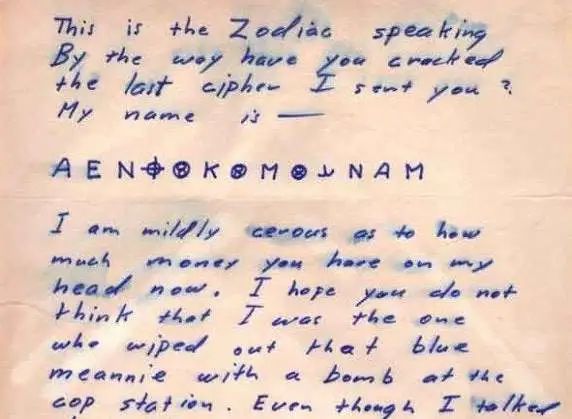 This is the Zodiac speaking
By the way have you cracked
the last cipher I sent you ?
My name is —
A E N ⌖ ⊗ K ⊗ M ⊗ ⅃ N A M
I am mildly cerous as to how
much money you have on my
head now. I hope you do not
think that I was the one
who wiped out that blue
meannie with a bomb at the
cop station. Even though I talked